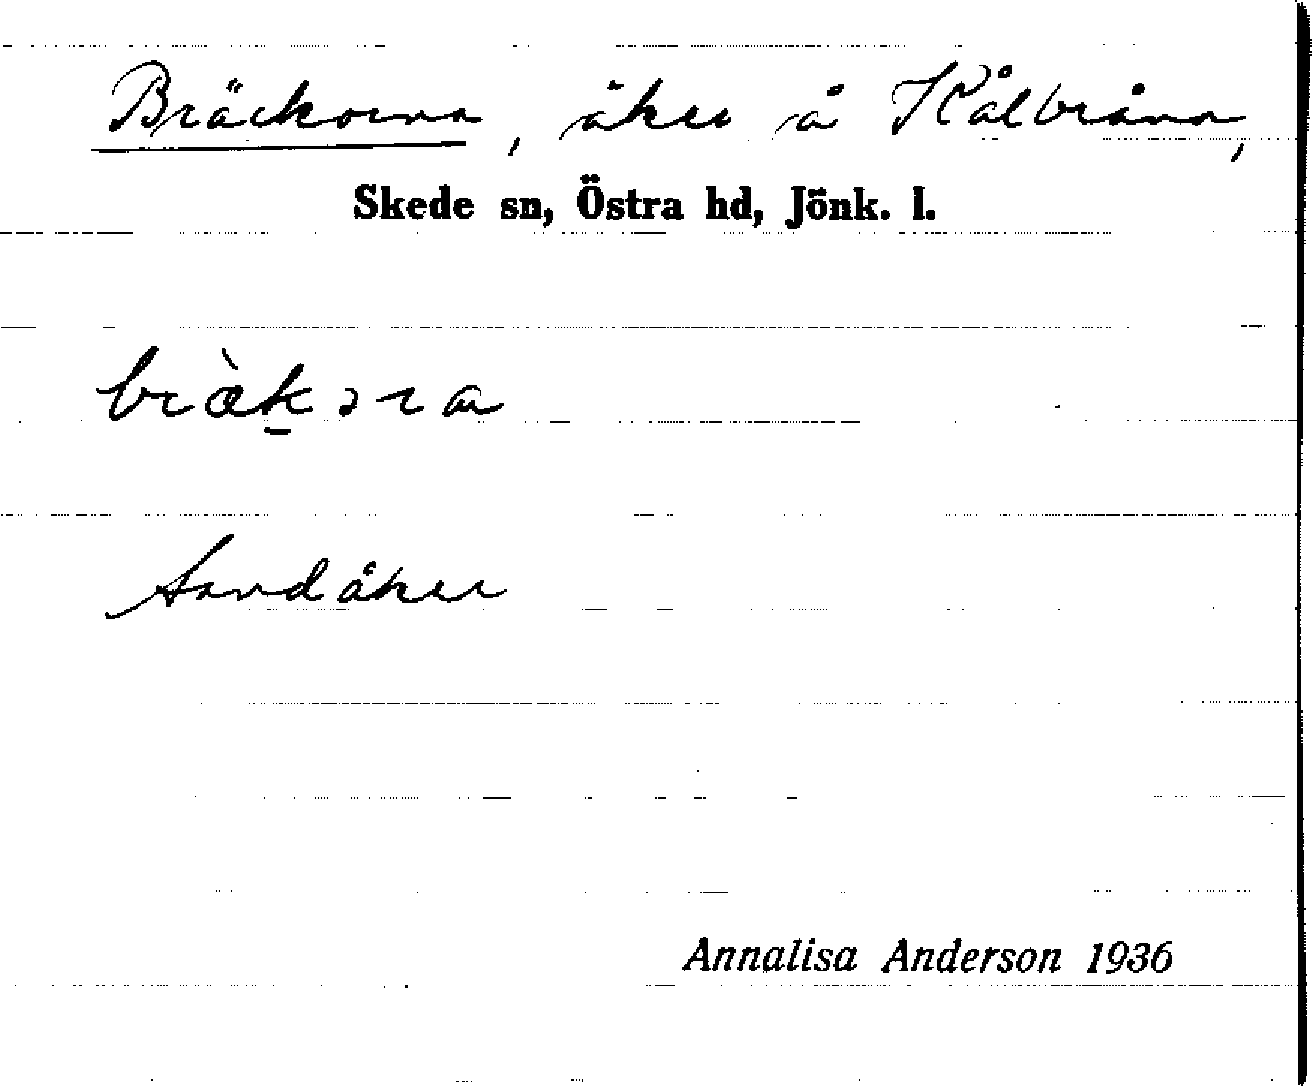 Bräckorna, åker å Kålbråna,
Skede sn, Östra hd, Jönk. l.
bræ̀k̠ɔra
Sandåker
Annalisa Anderson 1936